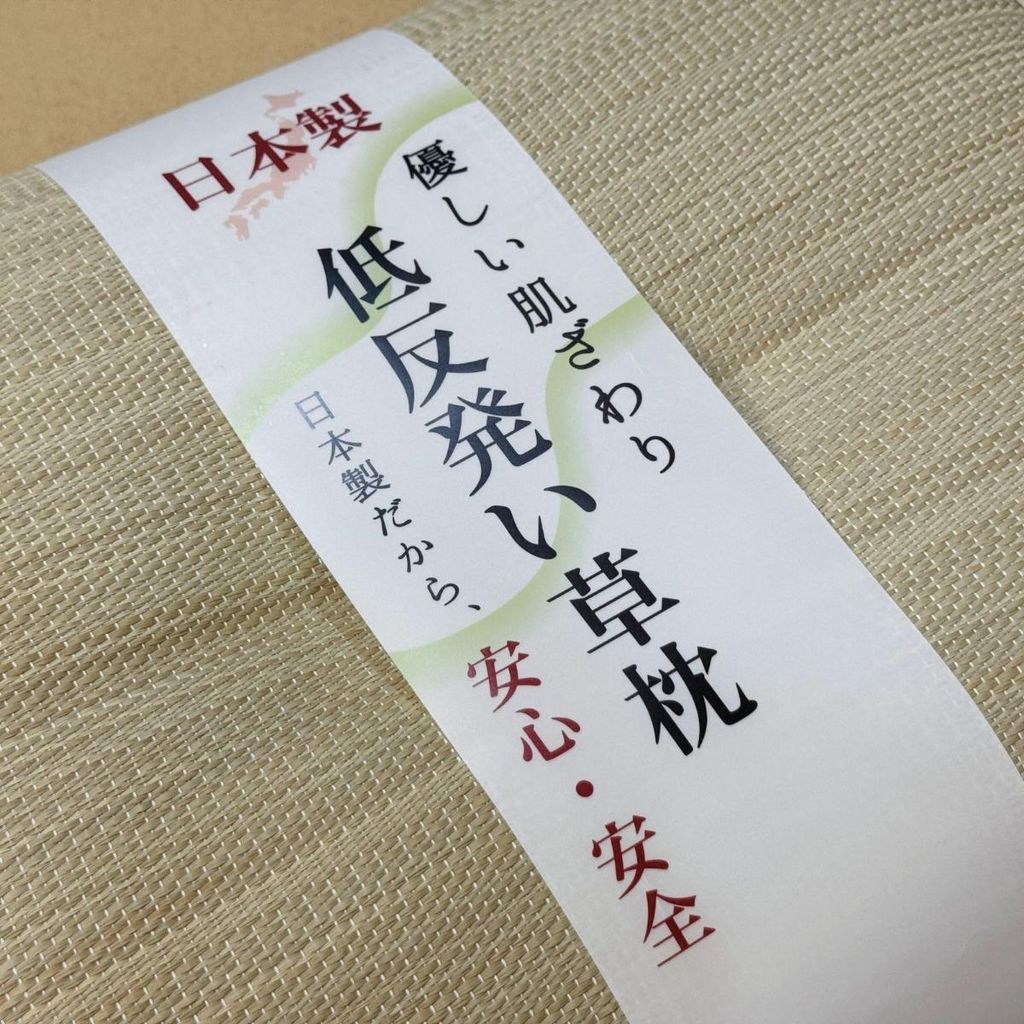 日本製
優しい肌ざわり
低反発い草枕
日本製だから、
安心・安全